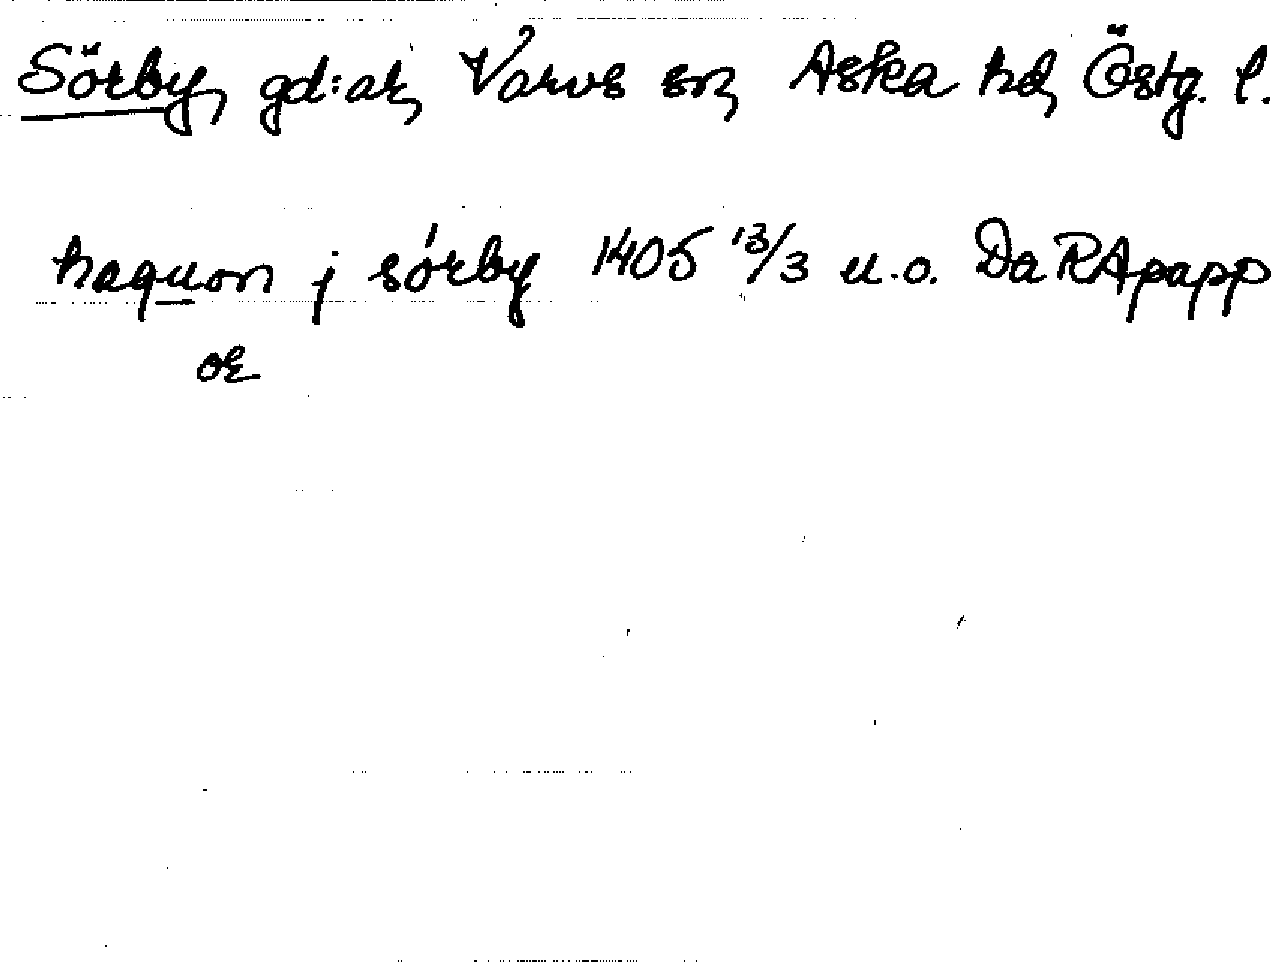 Sörby, gd:ar, Varvs sn, Aska hd, Östg. l.
haquon j sórby 1405 13/3 u.o. Da RApapp